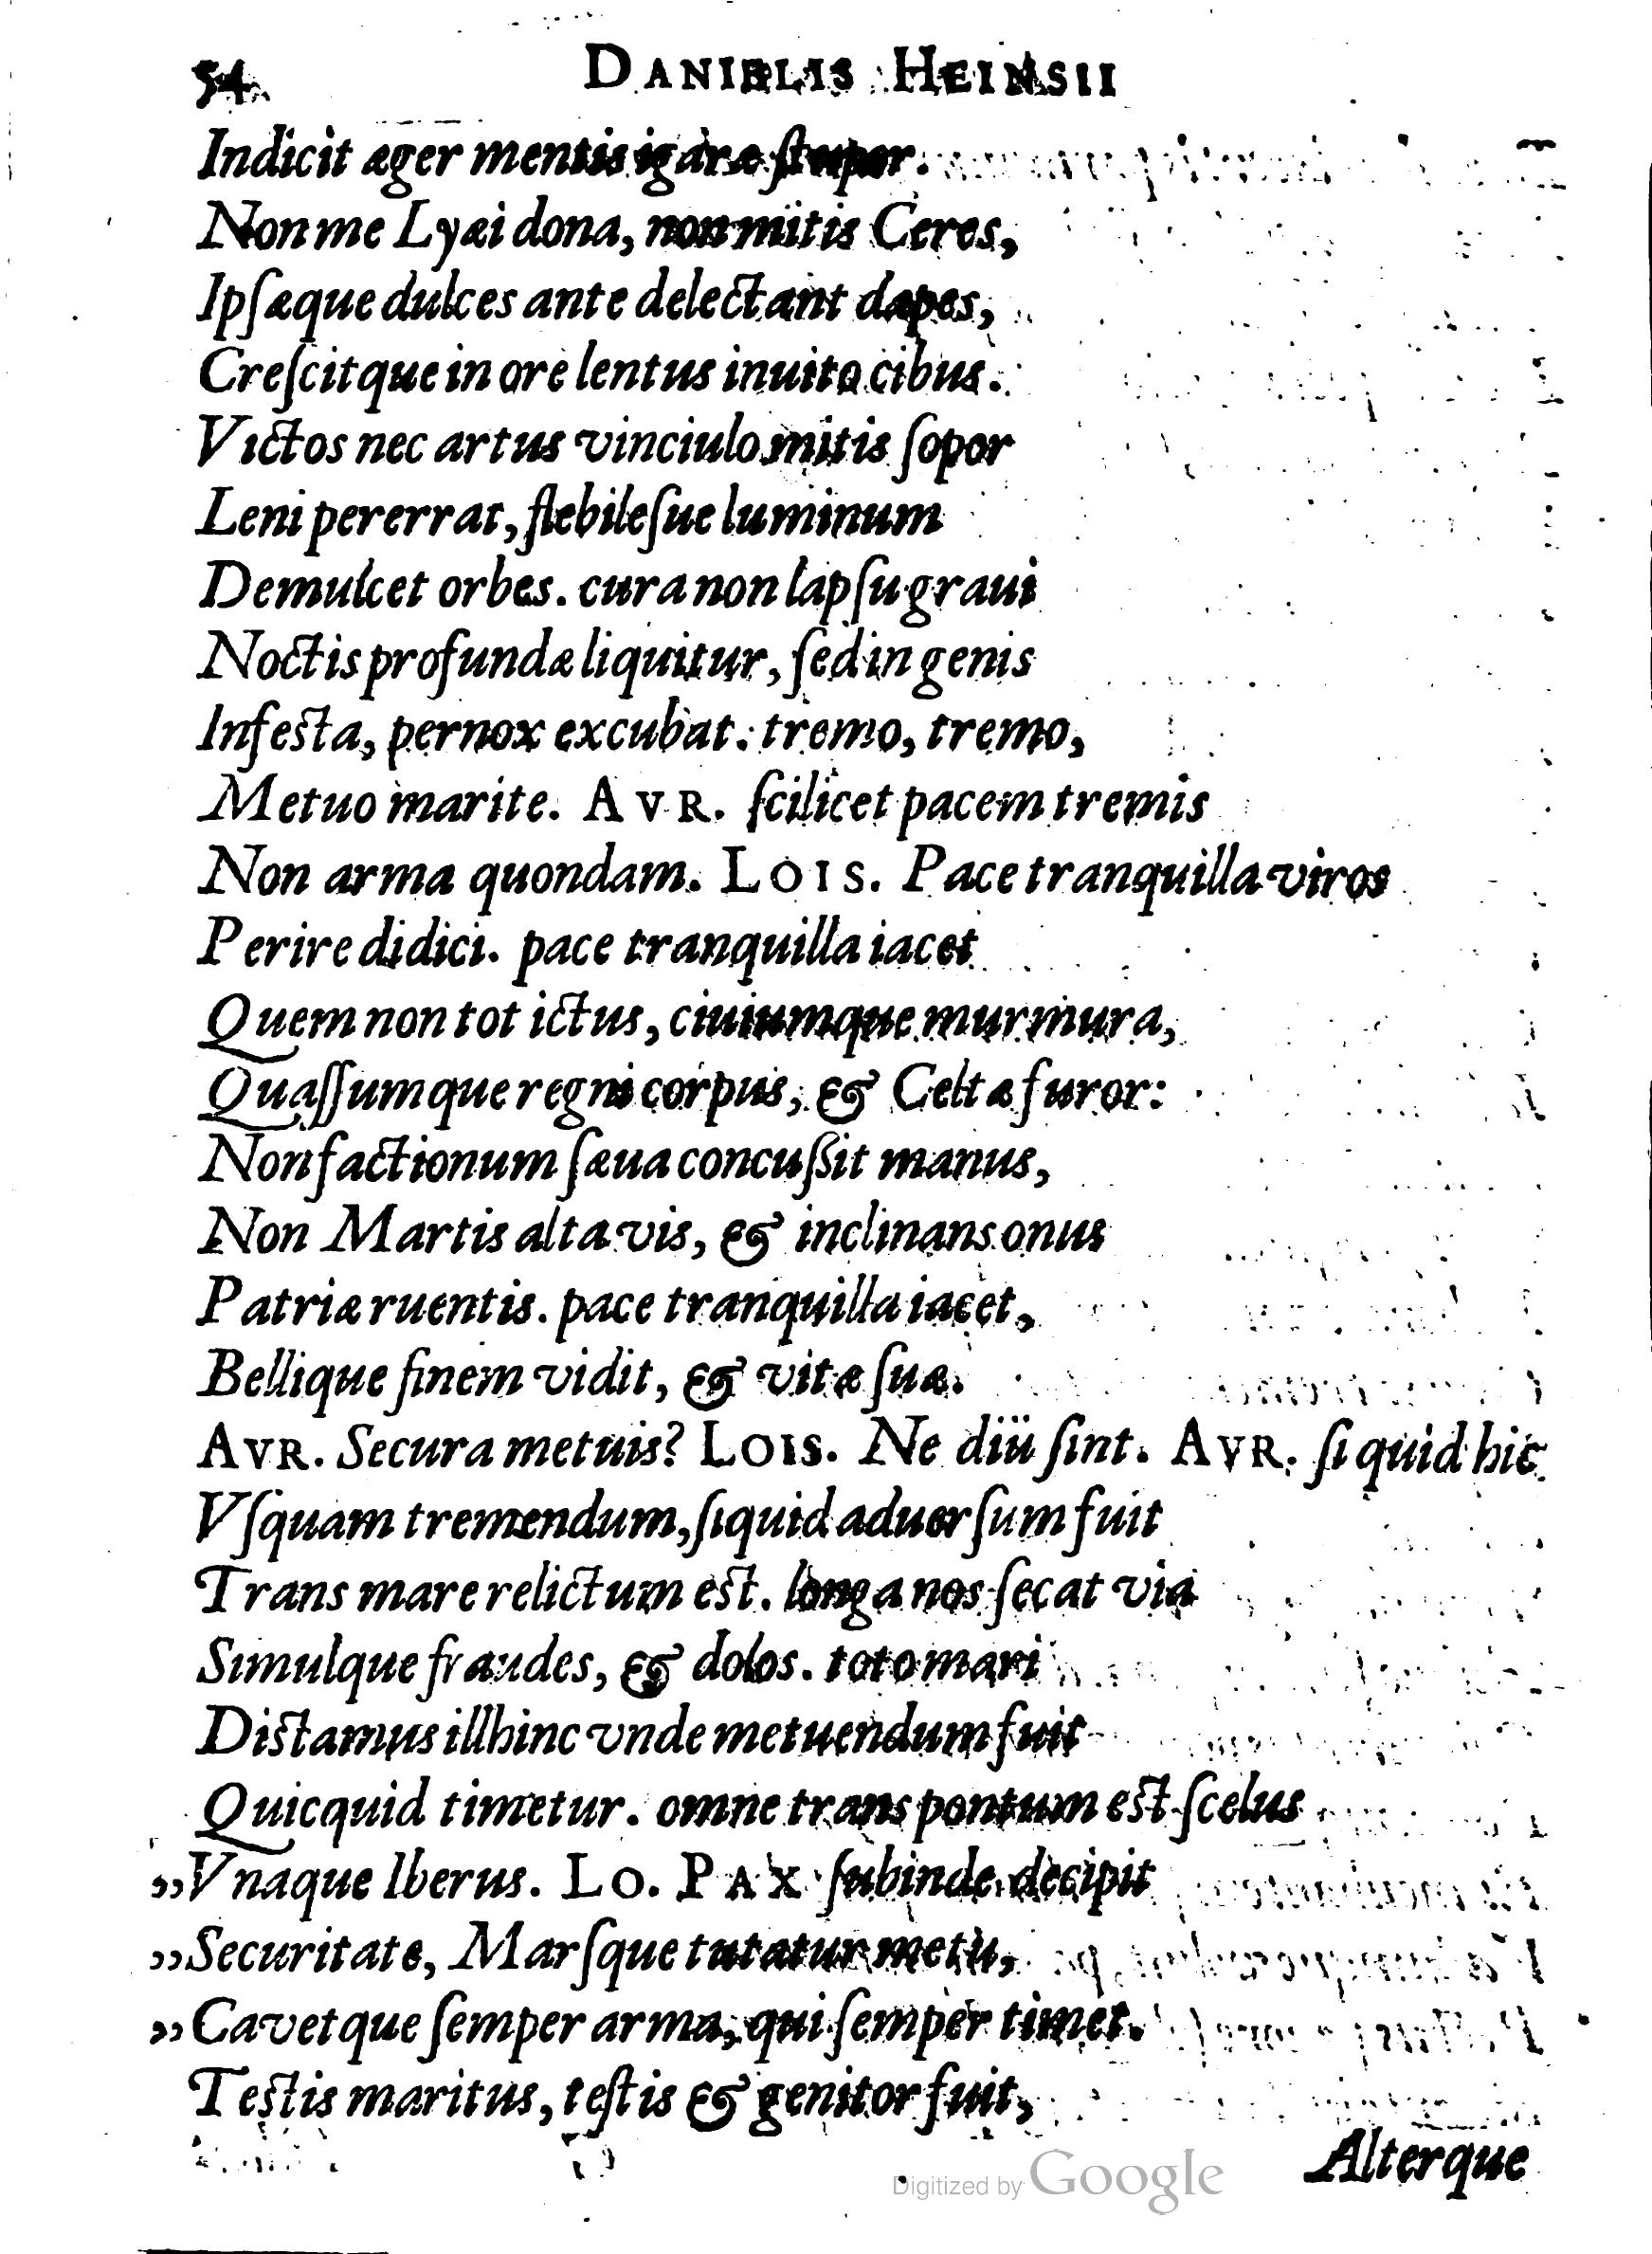 54 DANIELIS HEINSII
Indicit æger mentis igaræ ſtupor.
Non me Lyæi dona, non mitis Ceres,
Ipſæque dulces ante delectant dapes,
Creſcitque in ore lentus inuito cibus.
Victos nec artus vinciulo mitis ſopor
Leni pererrat, flebileſue luminum
Demulcet orbes. cura non lapſu graui
Noctis profundæ liquitur, ſed in genis
Infesta, pernox excubat: tremo, tremo,
Metuo marite. AVR. ſcilicet pacem tremis
Non arma quondam. LOIS. Pace tranquilla viros
Perire didici. pace tranquilla iacet
Quem non tot ictus, ciuiumque murmura,
Quaſſumque regni corpus, & Celtæ furor:
Non factionum ſæua concuſſit manus,
Non Martis alta vis, & inclinans onus
Patriæ ruentis. pace tranquilla iacet,
Bellique finem vidit, & vitæ ſuæ.
AVR. Secura metuis? LOIS. Ne diü ſint. AVR. ſi quid hic
Vſquam tremendum, ſi quid aduerſum fuit
Trans mare relictum est. longa nos ſecat via
Simulque fraudes, & dolos. toto mari
Distamus illhinc vnde metuendum fuit
Quicquid timetur. omne trans pontum est ſcelus
„Vnaque Iberus. LO. PAX ſubinde decipit
„Securitate, Marſque tutatur metu,
„Cavetque ſemper arma, qui ſemper timet.
Testis maritus, teſtis & genitor fuit,
Alterque
Digitized by Google